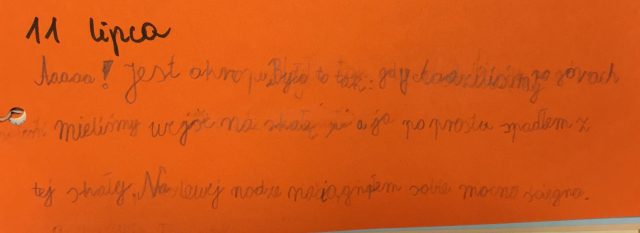 11 lipca
Aaaaa! Jest okropnie. Było to tak: gdy chodziliśmy po górach
mieliśmy wejść na skałę i a ja po prostu spadłem z
tej skały. Na lewej nodze naciągnąłem sobie mocno ścięgna.